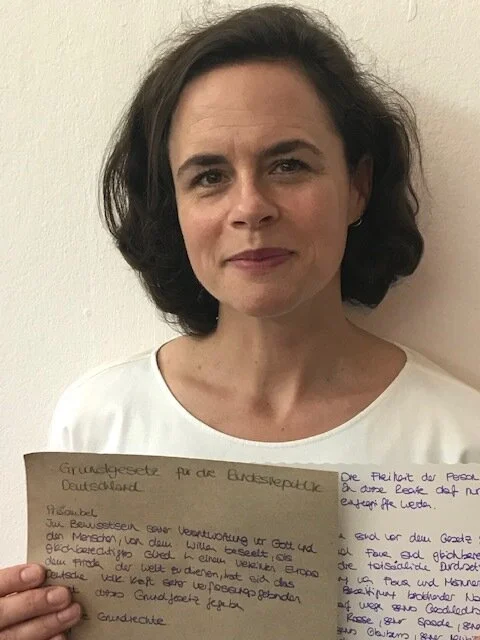 Grundgesetz für die Bundesrepublik
Deutschland
Präambel
Im Bewusstsein seiner Verantwortung vor Gott und
den Menschen, von dem Willen beseelt, als
gleichberechtigtes Glied in einem vereinten Europa
dem Frieden der Welt zu dienen, hat sich das
Deutsche Volk kraft seiner verfassungsgebenden
dieses Grundgesetz gegeben
Grundrechte
Die Freiheit der Person
In diese Rechte darf nur
eingegriffen werden.
sind vor dem Gesetz
Frau sind gleichbere
die tatsächliche Durchset
von Frauen und Männer
Beseitigung bestehender Na
wegen seines Geschlechts
Rasse, seiner Sprache, seine
seines Glaubens, seiner